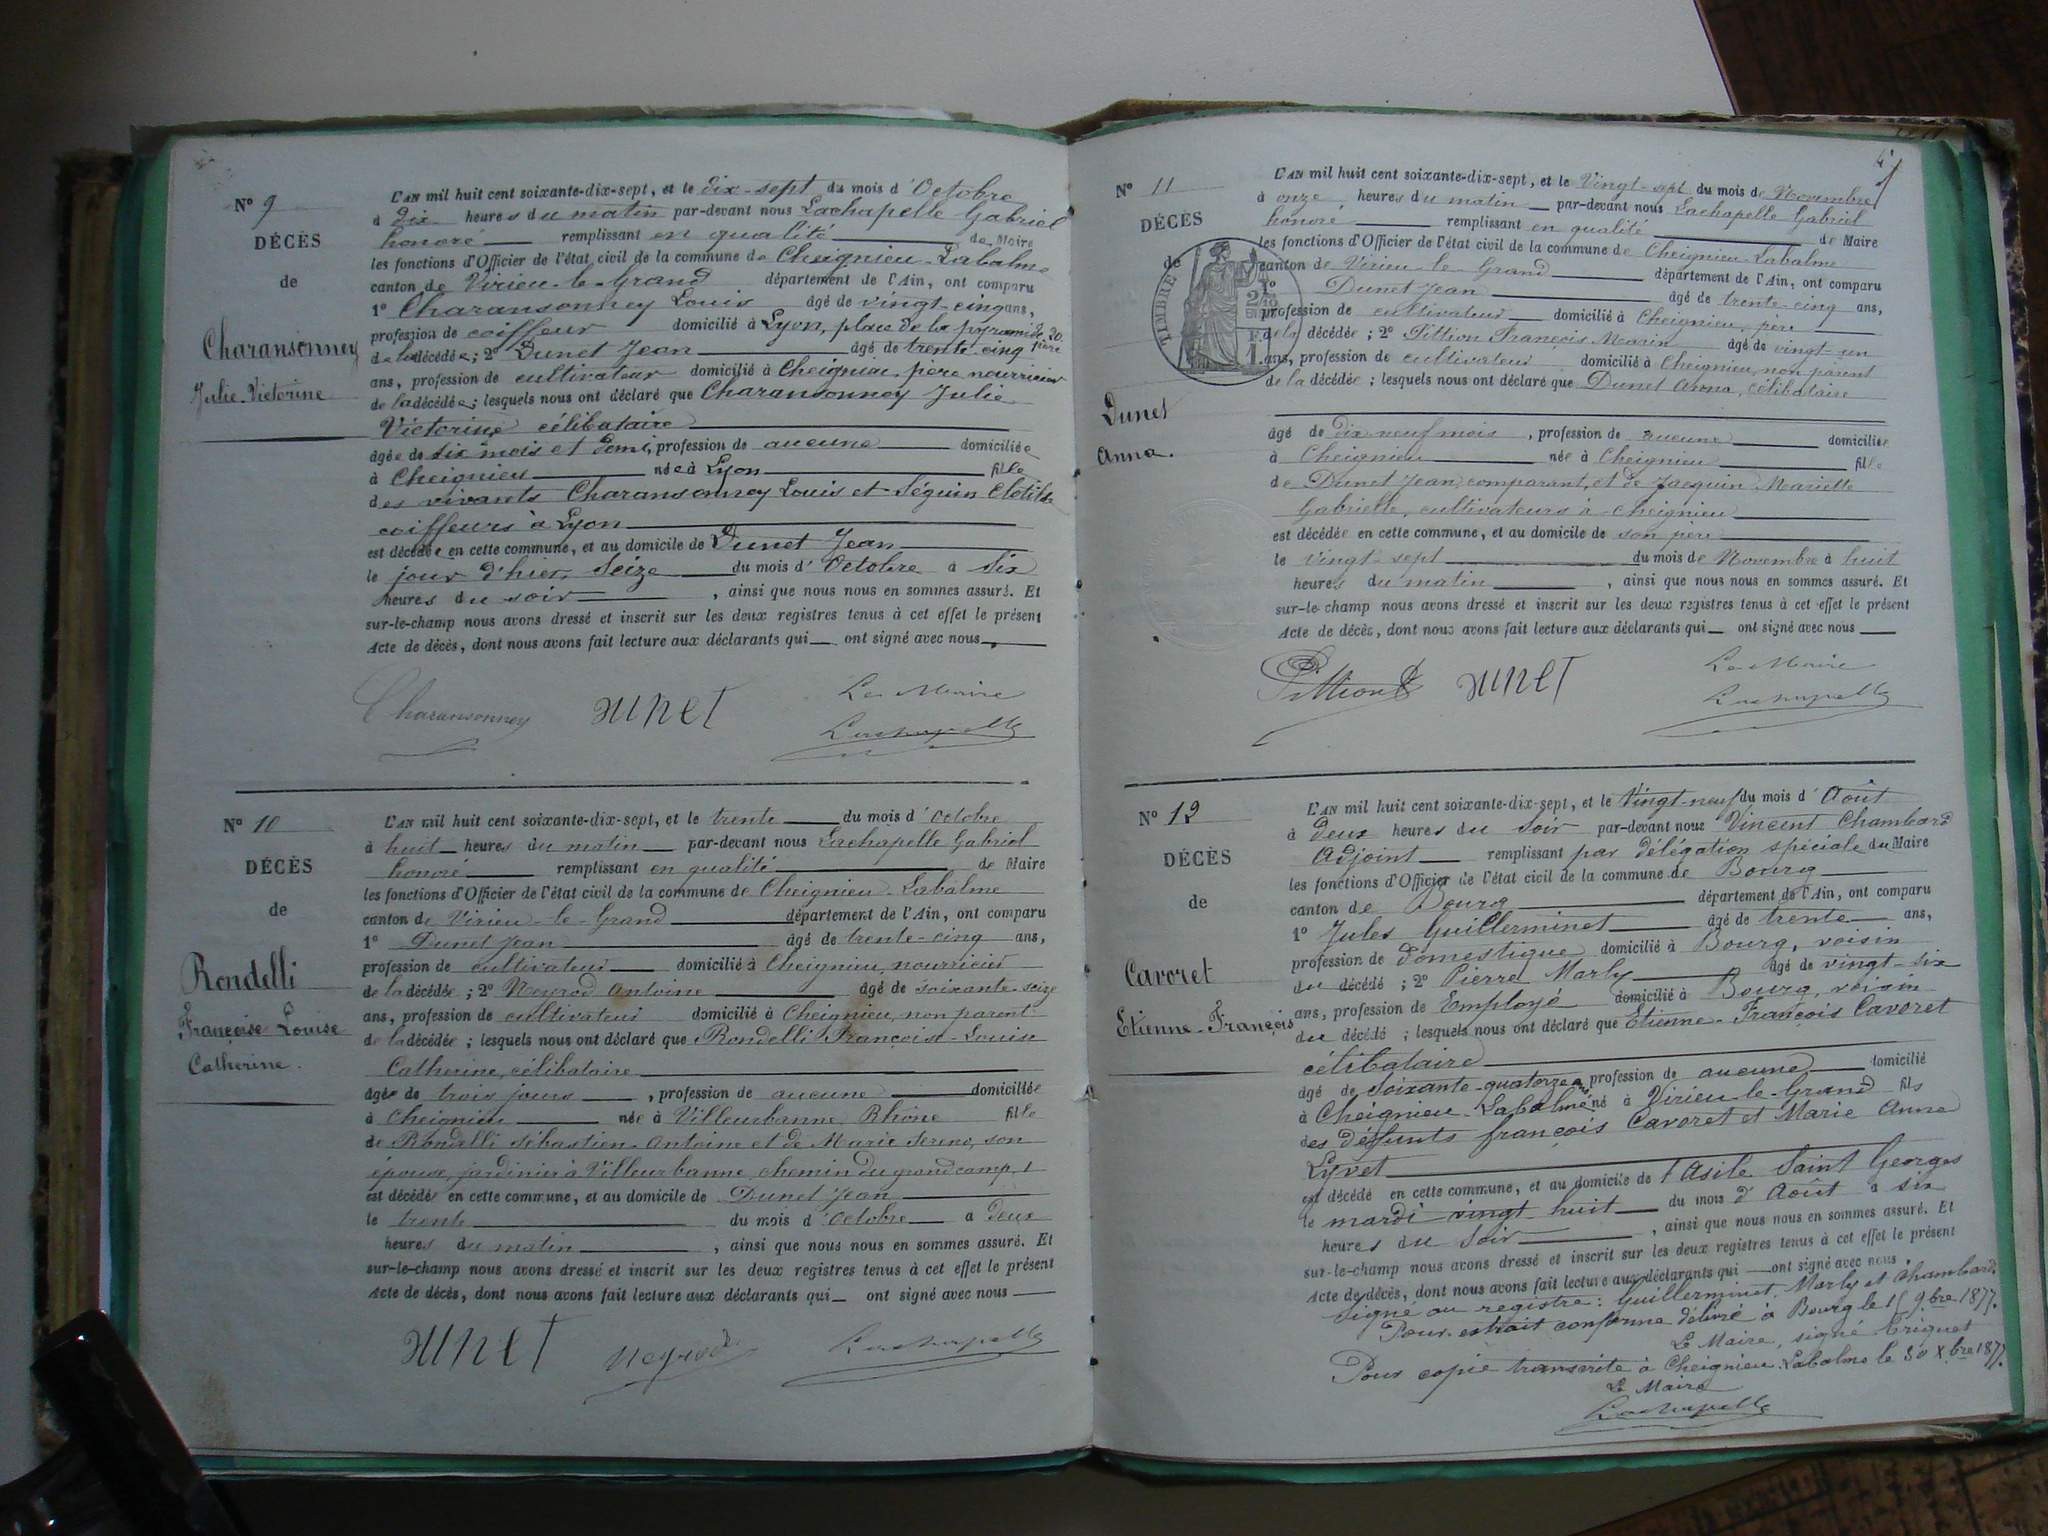 N° 9
DÉCÈS
de
Charansonney
Julie-Victorine
L'AN mil huit cent soixante-dix-sept, et le dix-sept du mois d'Octobre
à dix heures du matin par-devant nous Lachapelle Gabriel
honoré remplissant en qualité de Maire
les fonctions d'Officier de l'état civil de la commune de Cheignieu-Labalme
canton de Virieu-le-Grand département de l'Ain, ont comparu
1° Charansonney Louis âgé de vingt-cinq ans,
profession de coiffeur domicilié à Lyon, place de la pyramide, 20. père
de la décédée; 2° Dunet Jean âgé de trente-cinq
ans, profession de cultivateur domicilié à Cheignieu, père nourricier
de la décédée; lesquels nous ont déclaré que Charansonney Julie
Victorine célibataire
âgée de six mois et demi, profession de aucune domiciliée
à Cheignieu née à Lyon fille
des vivants Charansonney Louis et Séguin Clotilde
coiffeurs à Lyon
est décédée en cette commune, et au domicile de Dunet Jean
le jour d'hier, Seize du mois d'Octobre à Six
heures du soir, ainsi que nous nous en sommes assuré. Et
sur-le-champ nous avons dressé et inscrit sur les deux registres tenus à cet effet le présent
Acte de décès, dont nous avons fait lecture aux déclarants qui ont signé avec nous
Charansonney Dunet Le Maire
Lachapelle
N° 10
DÉCÈS
de
Rondelli
Françoise-Louise
Catherine.
L'AN mil huit cent soixante-dix-sept, et le trente du mois d'Octobre
à huit heures du matin par-devant nous Lachapelle Gabriel
honoré remplissant en qualité de Maire
les fonctions d'Officier de l'état civil de la commune de Cheignieu-Labalme
canton de Virieu-le-Grand département de l'Ain, ont comparu
1° Dunet Jean âgé de trente-cinq ans,
profession de cultivateur domicilié à Cheignieu, nourricier
de la décédée; 2° Neyrod Antoine âgé de soixante-seize
ans, profession de cultivateur domicilié à Cheignieu, non parent
de la décédée; lesquels nous ont déclaré que Rondelli Françoise-Louise
Catherine, célibataire
âgée de trois jours, profession de aucune domiciliée
à Cheignieu née à Villeurbanne, Rhône fille
de Rondelli Sébastien-Antoine et de Marie Sereno, son
épouse, jardinier à Villeurbanne, chemin du grand camp, 1
est décédée en cette commune, et au domicile de Dunet Jean
le trente du mois d'Octobre à deux
heures du matin, ainsi que nous nous en sommes assuré. Et
sur-le-champ nous avons dressé et inscrit sur les deux registres tenus à cet effet le présent
Acte de décès, dont nous avons fait lecture aux déclarants qui ont signé avec nous
Dunet Neyrod Lachapelle
N° 11
DÉCÈS
de
TIMBRE
Dunet
Anna.
L'AN mil huit cent soixante-dix-sept, et le Vingt-sept du mois de Novembre
à onze heures du matin par-devant nous Lachapelle Gabriel
honoré remplissant en qualité de Maire
les fonctions d'Officier de l'état civil de la commune de Cheignieu-Labalme
canton de Virieu-le-Grand département de l'Ain, ont comparu
1° Dunet Jean âgé de trente-cinq ans,
profession de cultivateur domicilié à Cheignieu, père
de la décédée; 2° Pittion François Marin âgé de vingt-un
ans, profession de cultivateur domicilié à Cheignieu, non parent
de la décédée; lesquels nous ont déclaré que Dunet Anna, célibataire
âgé de dix neuf mois, profession de aucune domiciliée
à Cheignieu née à Cheignieu fille
de Dunet Jean, comparant, et de Jacquin Mariette
Gabrielle, cultivateurs à Cheignieu
est décédée en cette commune, et au domicile de son père
le vingt-sept du mois de Novembre à huit
heures du matin, ainsi que nous nous en sommes assuré. Et
sur-le-champ nous avons dressé et inscrit sur les deux registres tenus à cet effet le présent
Acte de décès, dont nous avons fait lecture aux déclarants qui ont signé avec nous
Pittion Dunet Le Maire
Lachapelle
N° 12
DÉCÈS
de
Cavoret
Etienne-François
L'AN mil huit cent soixante-dix-sept, et le Vingt-neuf du mois d'Août
à deux heures du Soir par-devant nous Vincent Chambard
Adjoint remplissant par délégation spéciale du Maire
les fonctions d'Officier de l'état civil de la commune de Bourg
canton de Bourg département de l'Ain, ont comparu
1° Jules Guillerminet âgé de trente ans,
profession de Domestique domicilié à Bourg, voisin
du décédé; 2° Pierre Marly âgé de vingt-six
ans, profession de Employé domicilié à Bourg, voisin
du décédé; lesquels nous ont déclaré que Etienne-François Cavoret
célibataire
âgé de Soixante-quatorze ans profession de aucune domicilié
à Cheignieu-Labalme né à Virieu-le-Grand fils
des défunts françois Cavoret et Marie Anne
Lyvet
est décédé en cette commune, et au domicile de l'Asile Saint Georges
le mardi vingt huit du mois d'Août à six
heures du Soir, ainsi que nous nous en sommes assuré. Et
sur-le-champ nous avons dressé et inscrit sur les deux registres tenus à cet effet le présent
Acte de décès, dont nous avons fait lecture aux déclarants qui ont signé avec nous.
Signé au registre: Guillerminet, Marly et Chambard.
Pour extrait conforme délivré à Bourg le 15 9.bre 1877.
Le Maire, signé
Pour copie transcrite à Cheignieu-Labalme le 30 X.bre 1877.
Le Maire
Lachapelle